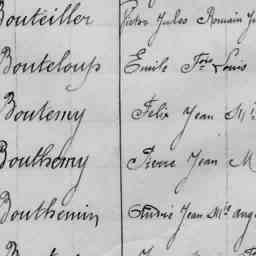 Bouteiller Victor Jules Romain
Bouteloup Emile Fois Louis
Boutemy Félix Jean M
Bouthemy Pierre Jean M
Bouthemin André Jean Mie Ang